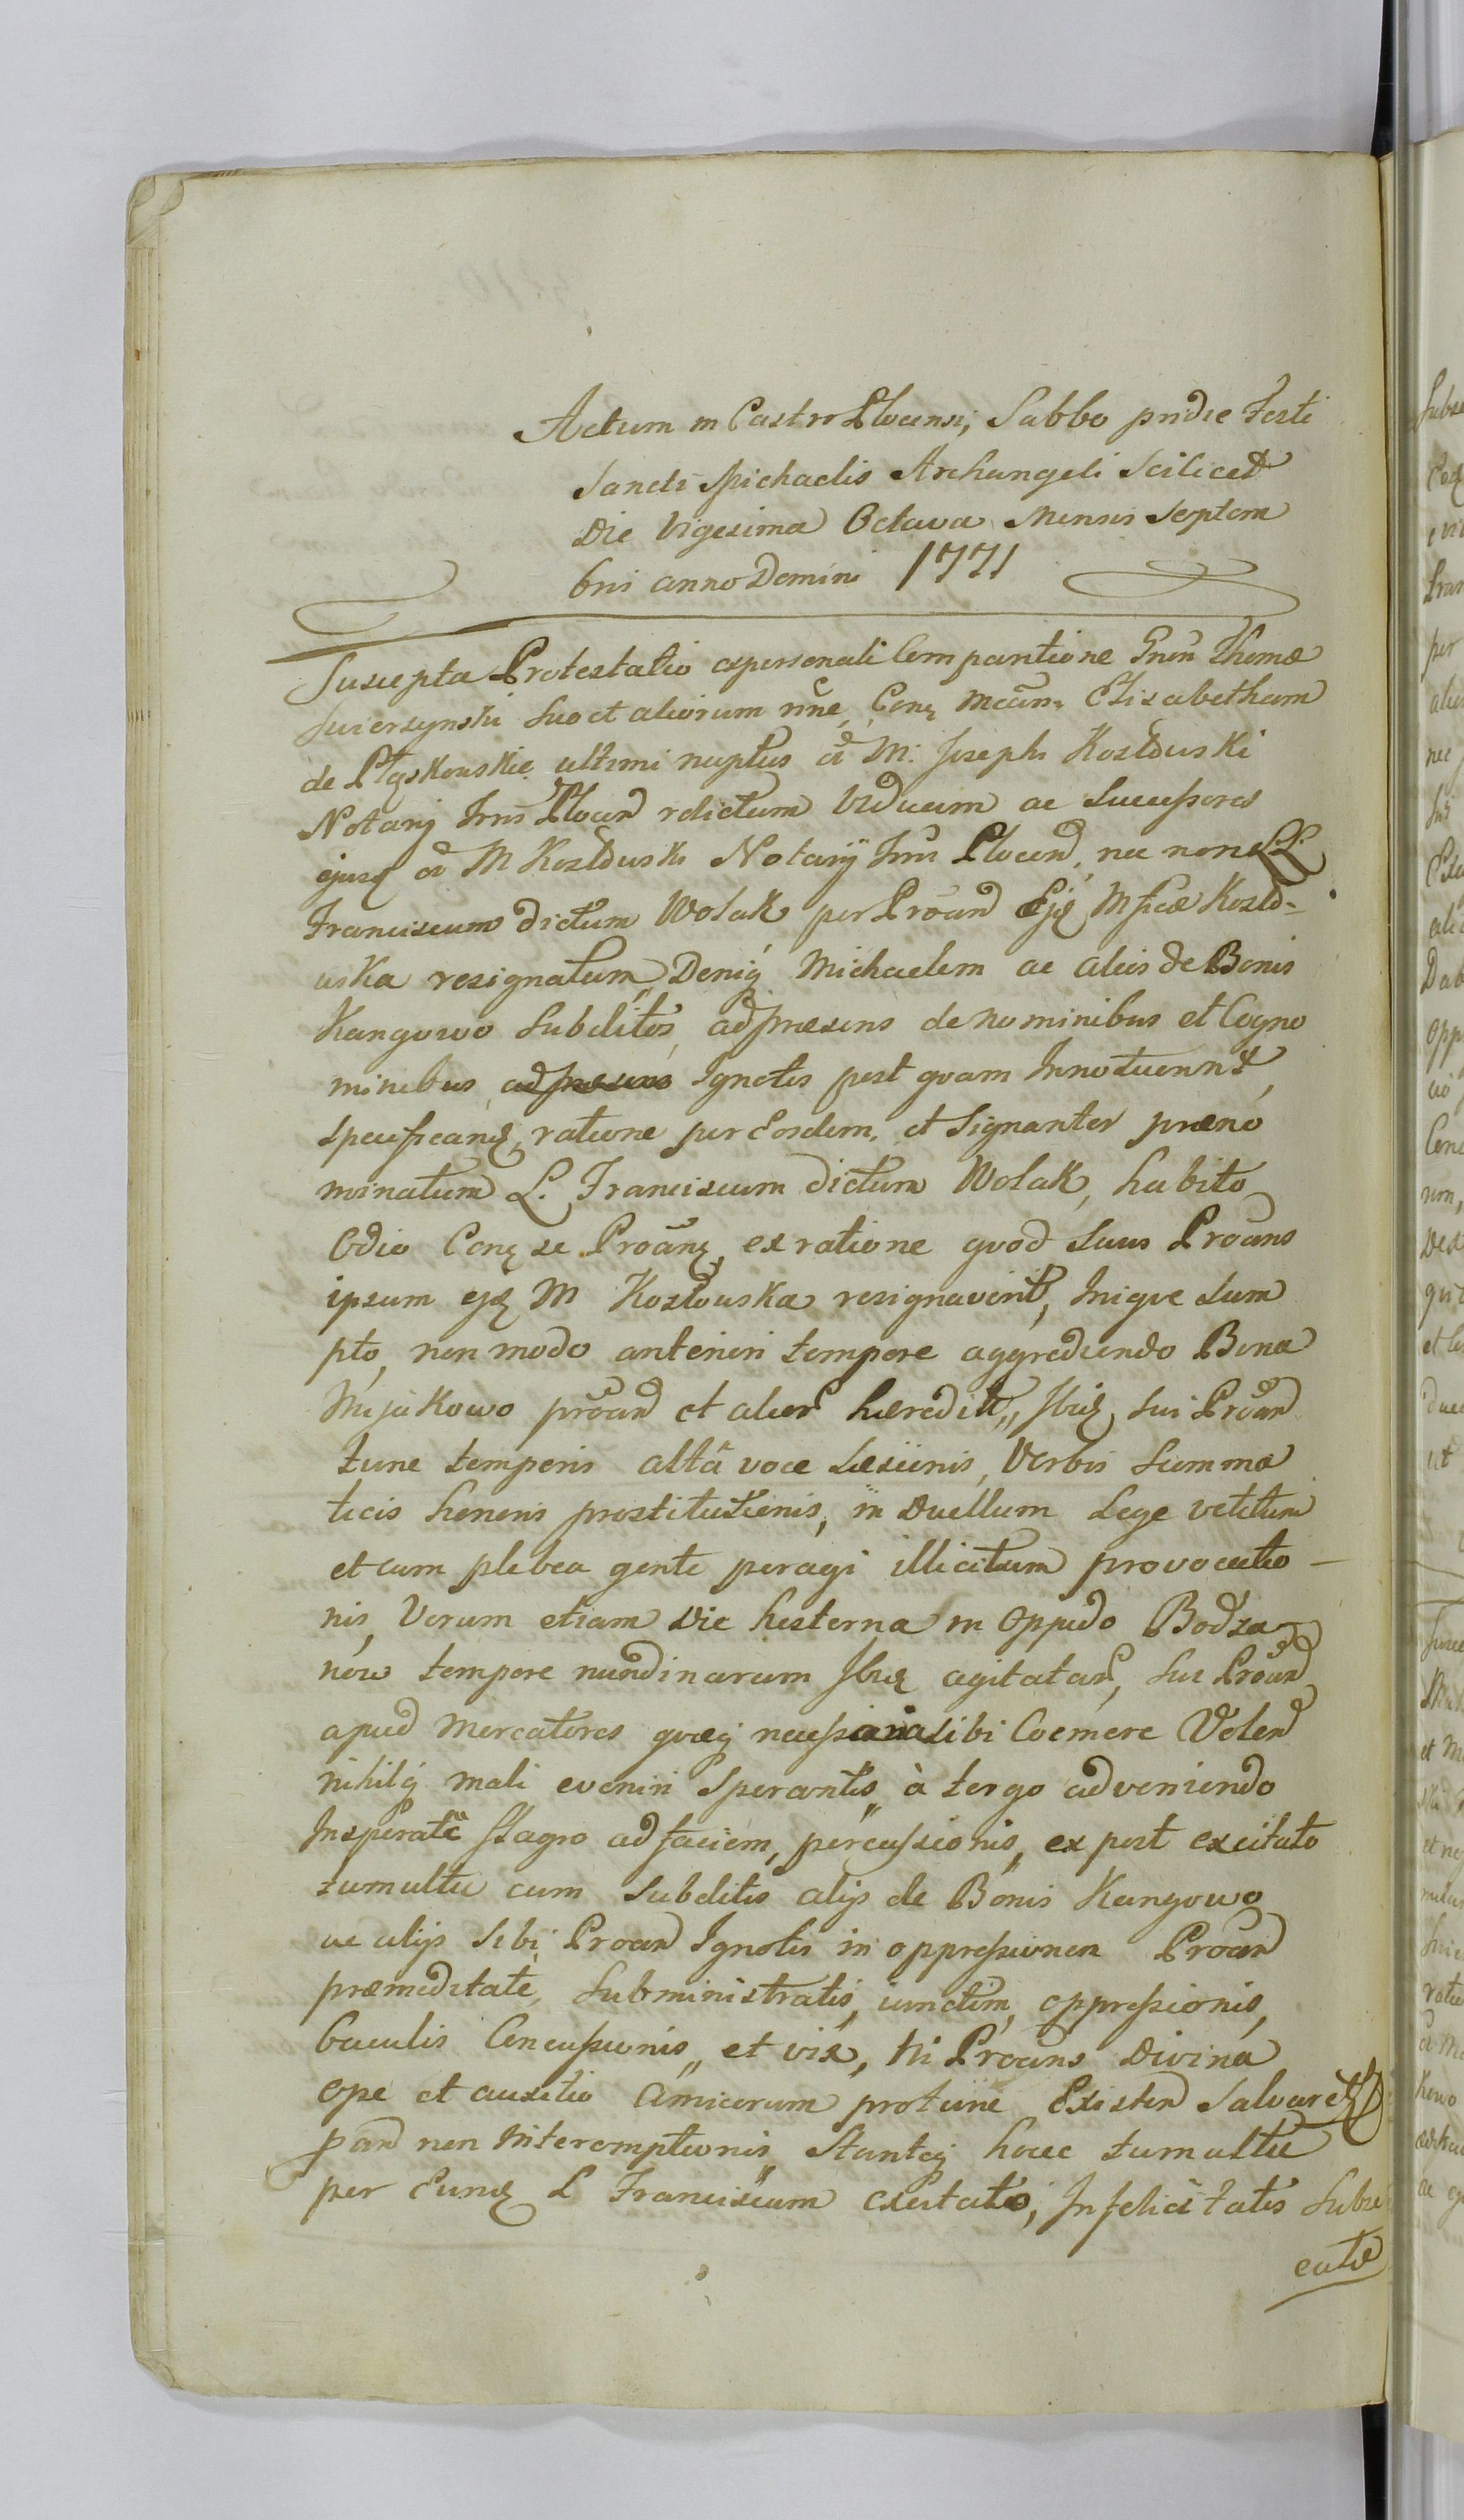 Actum in Castro Plocensi, Sabbo pridie Festi
Sancti Michaelis Archangeli Scilicet
Die Vigesima Octava Mensis Septem
bris anno Domini 1771
Suscepta Protestatio a personali Comparitione Gnén Thomæ
suo et aliorum nne, Conq Mcam Elisabetham
de ultimi nuptus M: Joseph Kozłouski
Notarij Plocen relictam Viduam ac Successores
ejusq M Kozłouski Notarij Plocen, nec non LL
Franciscum dictum Wolak per Proan Ejq Mficæ Kozło-
uska resignatum, Deniq Michaelem ac alios de Bonis
Kangowo Subditos, ad præsens de nominibus et Cogno
minibus, Ignotis post quam Innotuerint,
specificanq, ratione per Eosdem, et Signanter præno
minatum L. Franciscum dictum Wolak, habito
Odio Conq se Proanq, ex ratione quod Suus Proans
ipsum ejq M Kozłouska resignaverit, Inique Sum
pto, non modo anteriori tempore aggrediendo Bona
Mijakowo proan et alior hæredit, Ibiq Sui Proan
tunc temporis altâ voce Læsionis, Verbis Summa
ticis honoris prostitutionis, in Duellum Lege vetitum
et cum plebea gente peragi illicitum provocatio-
nis, Verum etiam Die hesterna in Oppido Bodza
now tempore nundinarum Ibiq agitatar, Sui Proan
apud Mercatores quæq necessaria sibi Coemere Volen
nihilq mali eveniri Sperantis, à tergo adveniendo
Insperatê flagro ad faciem, percussionis, ex post excitato
tumultu cum Subditis alijs de Bonis Kangowo
ac alijs Sibi Proan Ignotis in oppressionem Proan
præmeditatê, Subministratis, iunctim, oppressionis,
baculis Concussionis, et vix, Ni Proans Divina
ope et auxilio Amicorum protunc Existen Salvaret
non Interemptionis, Stanteq hocce tumultu
per Eunq L Franciscum excitato, Infelicitatis Subse
cutæ